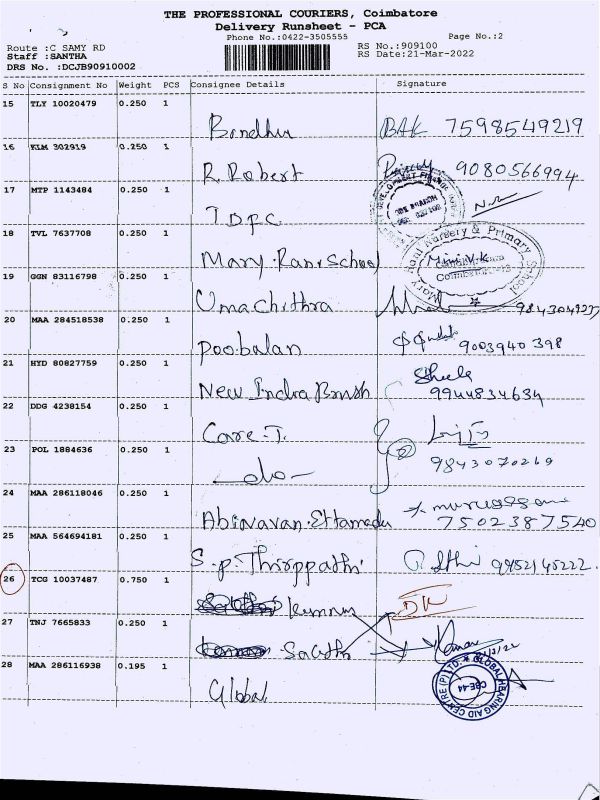 THE PROFESSIONAL COURIERS, Coimbatore
Delivery Runsheet - PCA
Phone No.:0422-3505555 Page No.:2
Route :C SAMY RD RS No.:909100
Staff :SANTHA RS Date:21-Mar-2022
DRS No. :DCJB90910002
S No Consignment No Weight PCS Consignee Details Signature
15 TLY 10020479 0.250 1
Bandhu BAK 7598549219
16 KLM 302919 0.250 1
R. Robert 9080566994
17 MTP 1143484 0.250 1
IDFC
18 TVL 7637708 0.250 1
Mary Rani School Mini V.K
Mary Rani Nursery & Primary School
19 GGN 83116798 0.250 1
Umachithra
20 MAA 284518538 0.250 1
Poobalan 9003940398
21 HYD 80827759 0.250 1
New Indra Brush Sheela
9944834634
22 DDG 4238154 0.250 1
Care T.
23 POL 1884636 0.250 1
-do- 9843070269
24 MAA 286118046 0.250 1
7502387540
25 MAA 564694181 0.250 1
S.P. 
26 TCG 10037487 0.750 1
Kumar
27 TNJ 7665833 0.250 1
Kumar
28 MAA 286116938 0.195 1
Global
GLOBAL HEARING AID CENTRE (P) LTD.
CBE-44